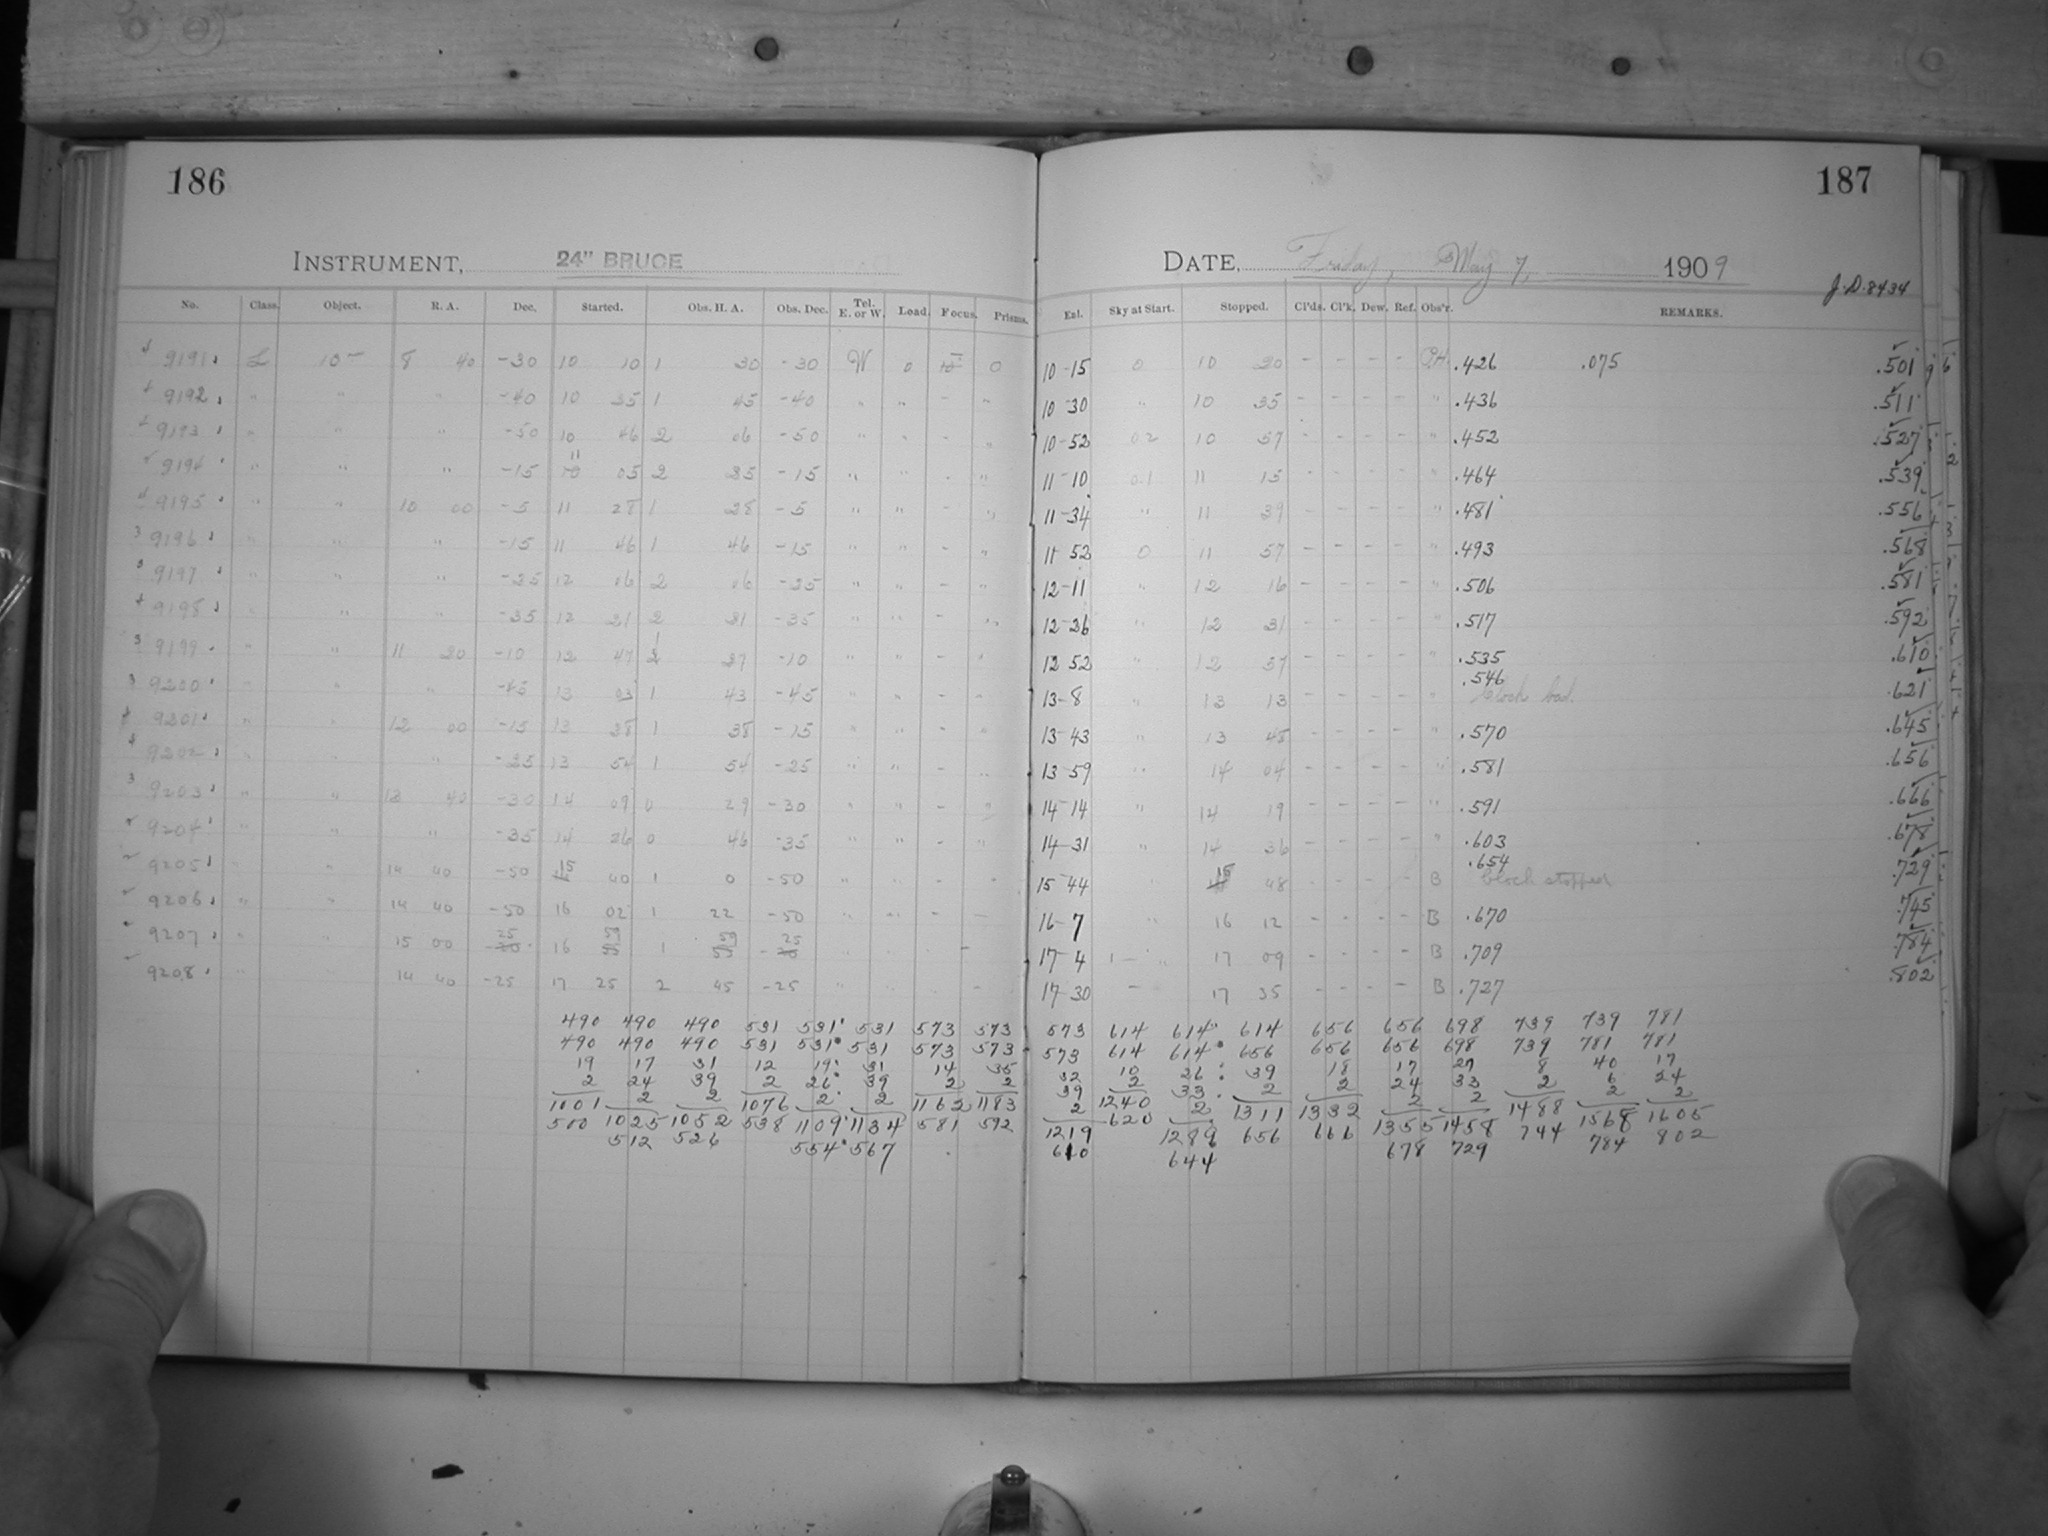 186
187
INSTRUMENT, 24" BRUCE
DATE, Friday, May 7, 1909
J.D. 8434
No. Class. Object. R. A. Dec. Started. Obs. H. A. Obs. Dec. Tel. E. or W. Load. Focus. Prisms. Exl. Sky at Start. Stopped. Cl'ds. Cl'k. Dew. Ref. Obs'r. REMARKS.
9191 L 10 8 40 -30 10 10 1 30 -30 W 0 0 10-15 0 10 20 - - - - .426 .075 .501
9192 " " " -40 10 25 1 45 -40 " " - " 10-30 " 10 35 - - - - " .436 .511
9193 " " " -50 10 46 2 06 -50 " " - " 10-52 02 10 57 - - - - " .452 .527
9194 " " " -15 11 05 2 25 -15 " " - " 11-10 01 11 15 - - - - " .464 .539
9195 " " 10 00 -5 11 28 1 28 -5 " " - " 11-34 " 11 39 - - - - " .481 .556
9196 " " " -15 11 46 1 46 -15 " " - " 11 52 0 11 57 - - - - " .493 .568
9197 " " " -25 12 06 2 06 -25 " " - " 12-11 " 12 16 - - - - " .506 .581
9198 " " " -35 12 21 2 21 -35 " " - " 12-26 " 12 31 - - - - " .517 .592
9199 " " 11 20 -10 12 47 1 27 -10 " " - " 12 52 " 12 57 - - - - " .535 .610
9200 " " " -45 13 03 1 43 -45 " " - " 13-8 " 13 13 - - - - " .546 Clock bad. .621
9201 " " 12 00 -15 13 38 1 38 -15 " " - " 13-43 " 13 48 - - - - " .570 .645
9202 " " " -25 13 54 1 54 -25 " " - " 13-59 " 14 04 - - - - " .581 .656
9203 " " 13 40 -30 14 09 0 29 -30 " " - " 14-14 " 14 19 - - - - " .591 .666
9204 " " " -35 14 26 0 46 -35 " " - " 14-31 " 14 36 - - - - " .603 .678
9205 " " 14 40 -50 15 40 1 0 -50 " " - " 15-44 " 15 48 - - - - B .654 Clock stopped .729
9206 " " 14 40 -50 16 02 1 22 -50 " " - - 16-7 " 16 12 - - - - B .670 .745
9207 " " 15 00 -25 16 59 1 59 -25 " " - 17-4 1 - " 17 09 - - - - B .709 .784
9208 " 14 40 -25 17 25 2 45 -25 " " - - 17-30 - 17 35 - - - - B .727 .802
490 490 490 531 531 531 573 573 573 614 614 614 656 656 698 739 739 781
490 490 490 531 531 531 573 573 573 614 614 656 656 656 698 739 781 781
19 17 31 12 19 31 14 35 32 10 26 39 18 17 27 8 40 17
2 24 39 2 26 39 2 2 39 2 33 2 2 24 33 2 6 24
1001 2 2 1076 2 2 1162 1183 2 1240 2 1311 1332 2 2 1488 2 2
500 1025 1052 538 1109 1134 581 592 1219 620 1289 656 666 1355 1458 744 1568 1605
512 526 554 567 610 644 678 729 784 802